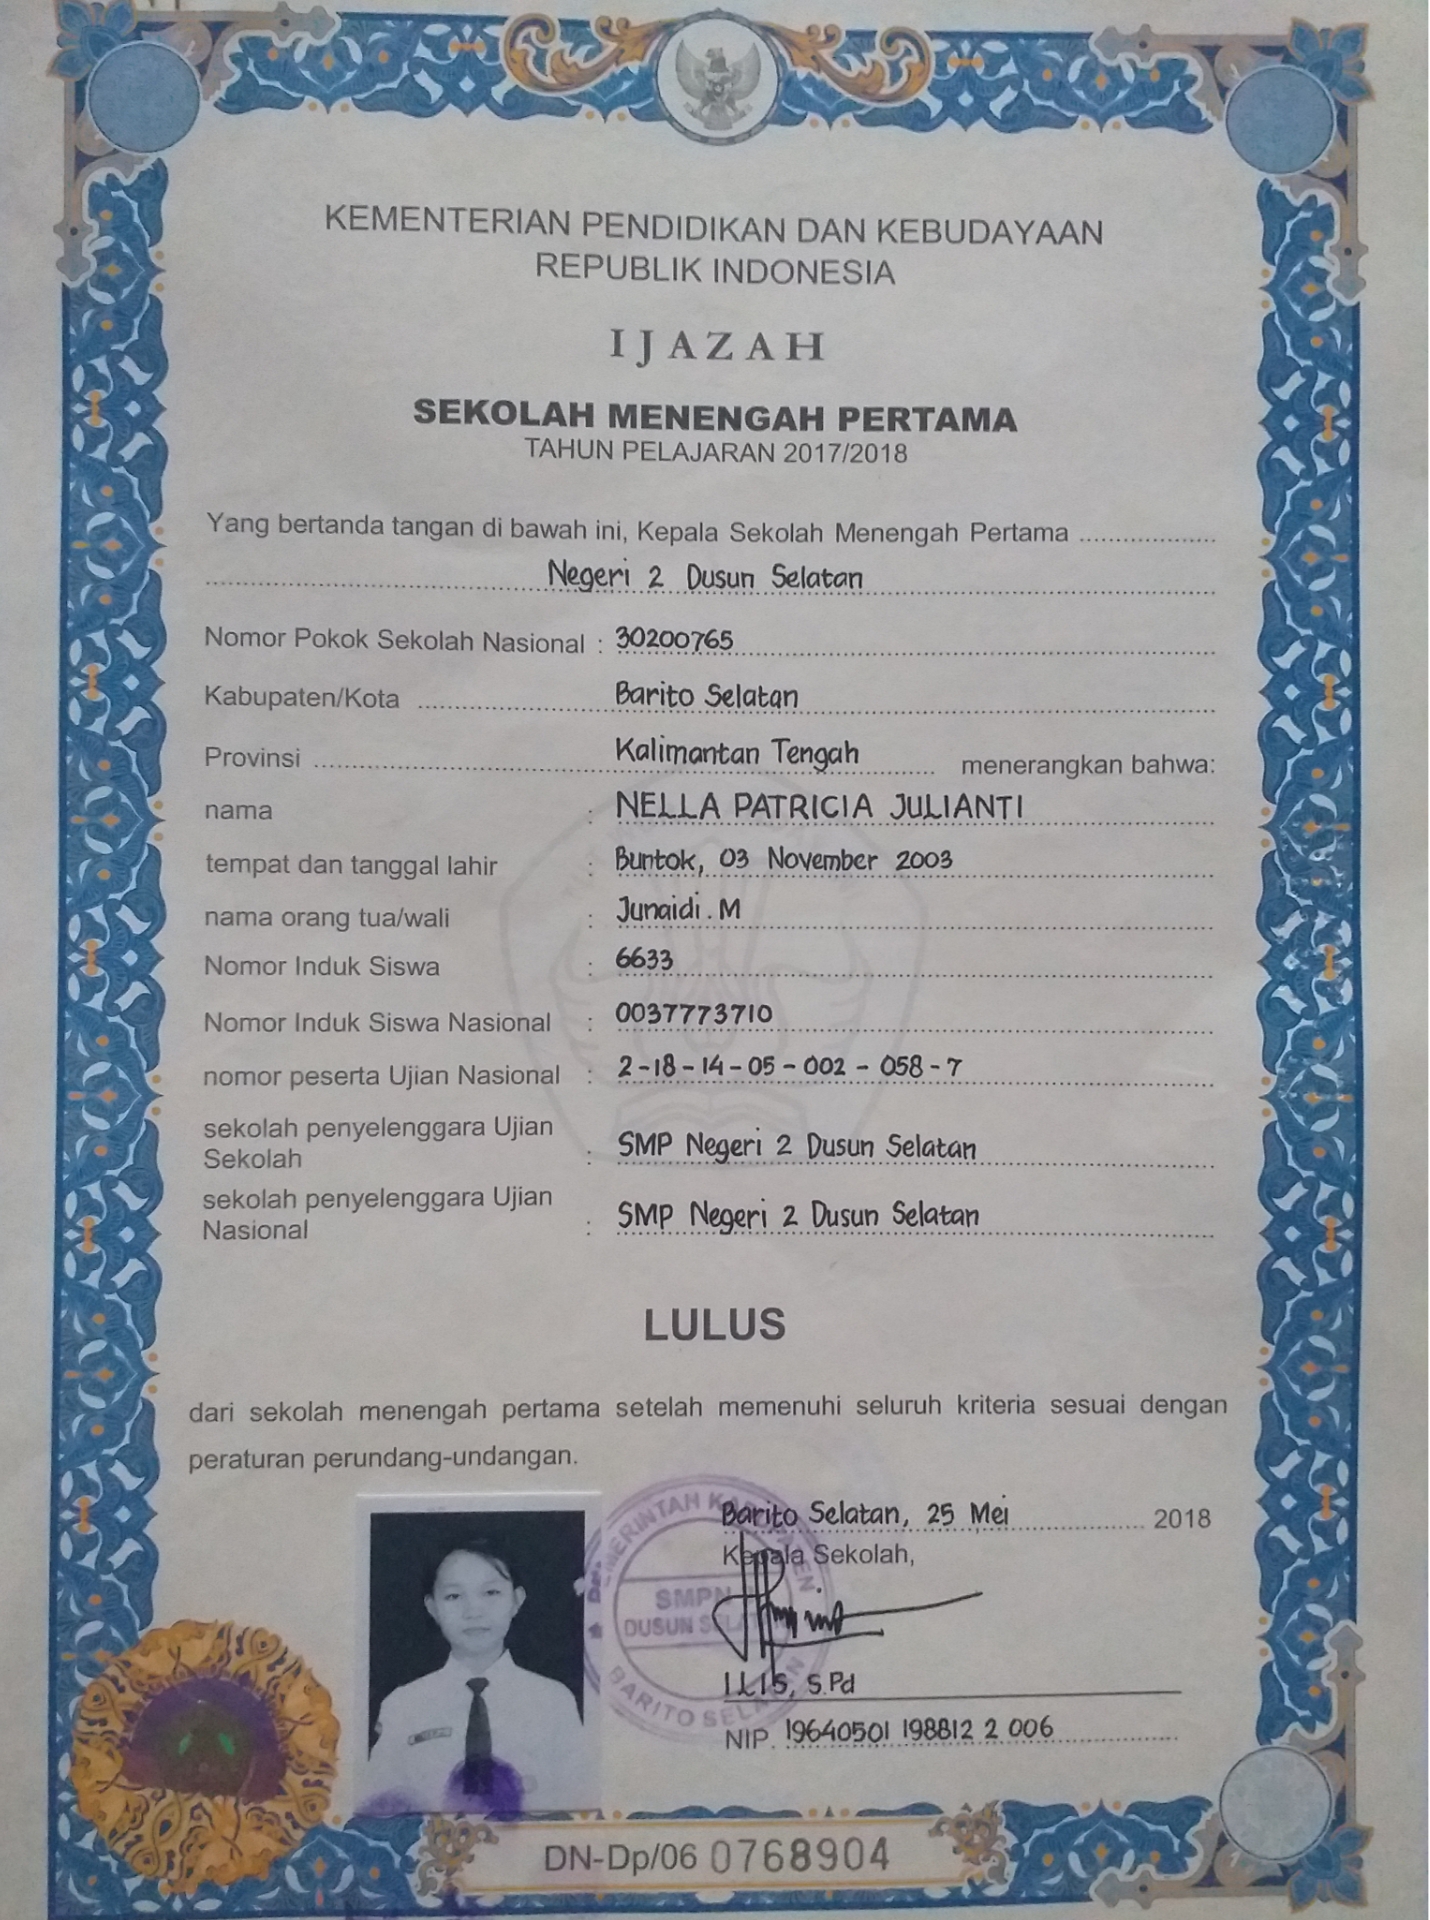 KEMENTERIAN PENDIDIKAN DAN KEBUDAYAAN
REPUBLIK INDONESIA
IJAZAH
SEKOLAH MENENGAH PERTAMA
TAHUN PELAJARAN 2017/2018
Yang bertanda tangan di bawah ini, Kepala Sekolah Menengah Pertama ...................
Negeri 2 Dusun Selatan
Nomor Pokok Sekolah Nasional : 30200765
Kabupaten/Kota Barito Selatan
Provinsi Kalimantan Tengah menerangkan bahwa:
nama : NELLA PATRICIA JULIANTI
tempat dan tanggal lahir : Buntok, 03 November 2003
nama orang tua/wali : Junaidi. M
Nomor Induk Siswa : 6633
Nomor Induk Siswa Nasional : 0037773710
nomor peserta Ujian Nasional : 2-18-14-05-002-058-7
sekolah penyelenggara Ujian
Sekolah : SMP Negeri 2 Dusun Selatan
sekolah penyelenggara Ujian
Nasional : SMP Negeri 2 Dusun Selatan
LULUS
dari sekolah menengah pertama setelah memenuhi seluruh kriteria sesuai dengan
peraturan perundang-undangan.
Barito Selatan, 25 Mei 2018
Kepala Sekolah,
SMPN
DUSUN
BARITO
ILIS, S.Pd
NIP. 19640501 198812 2 006
DN-Dp/06 0768904